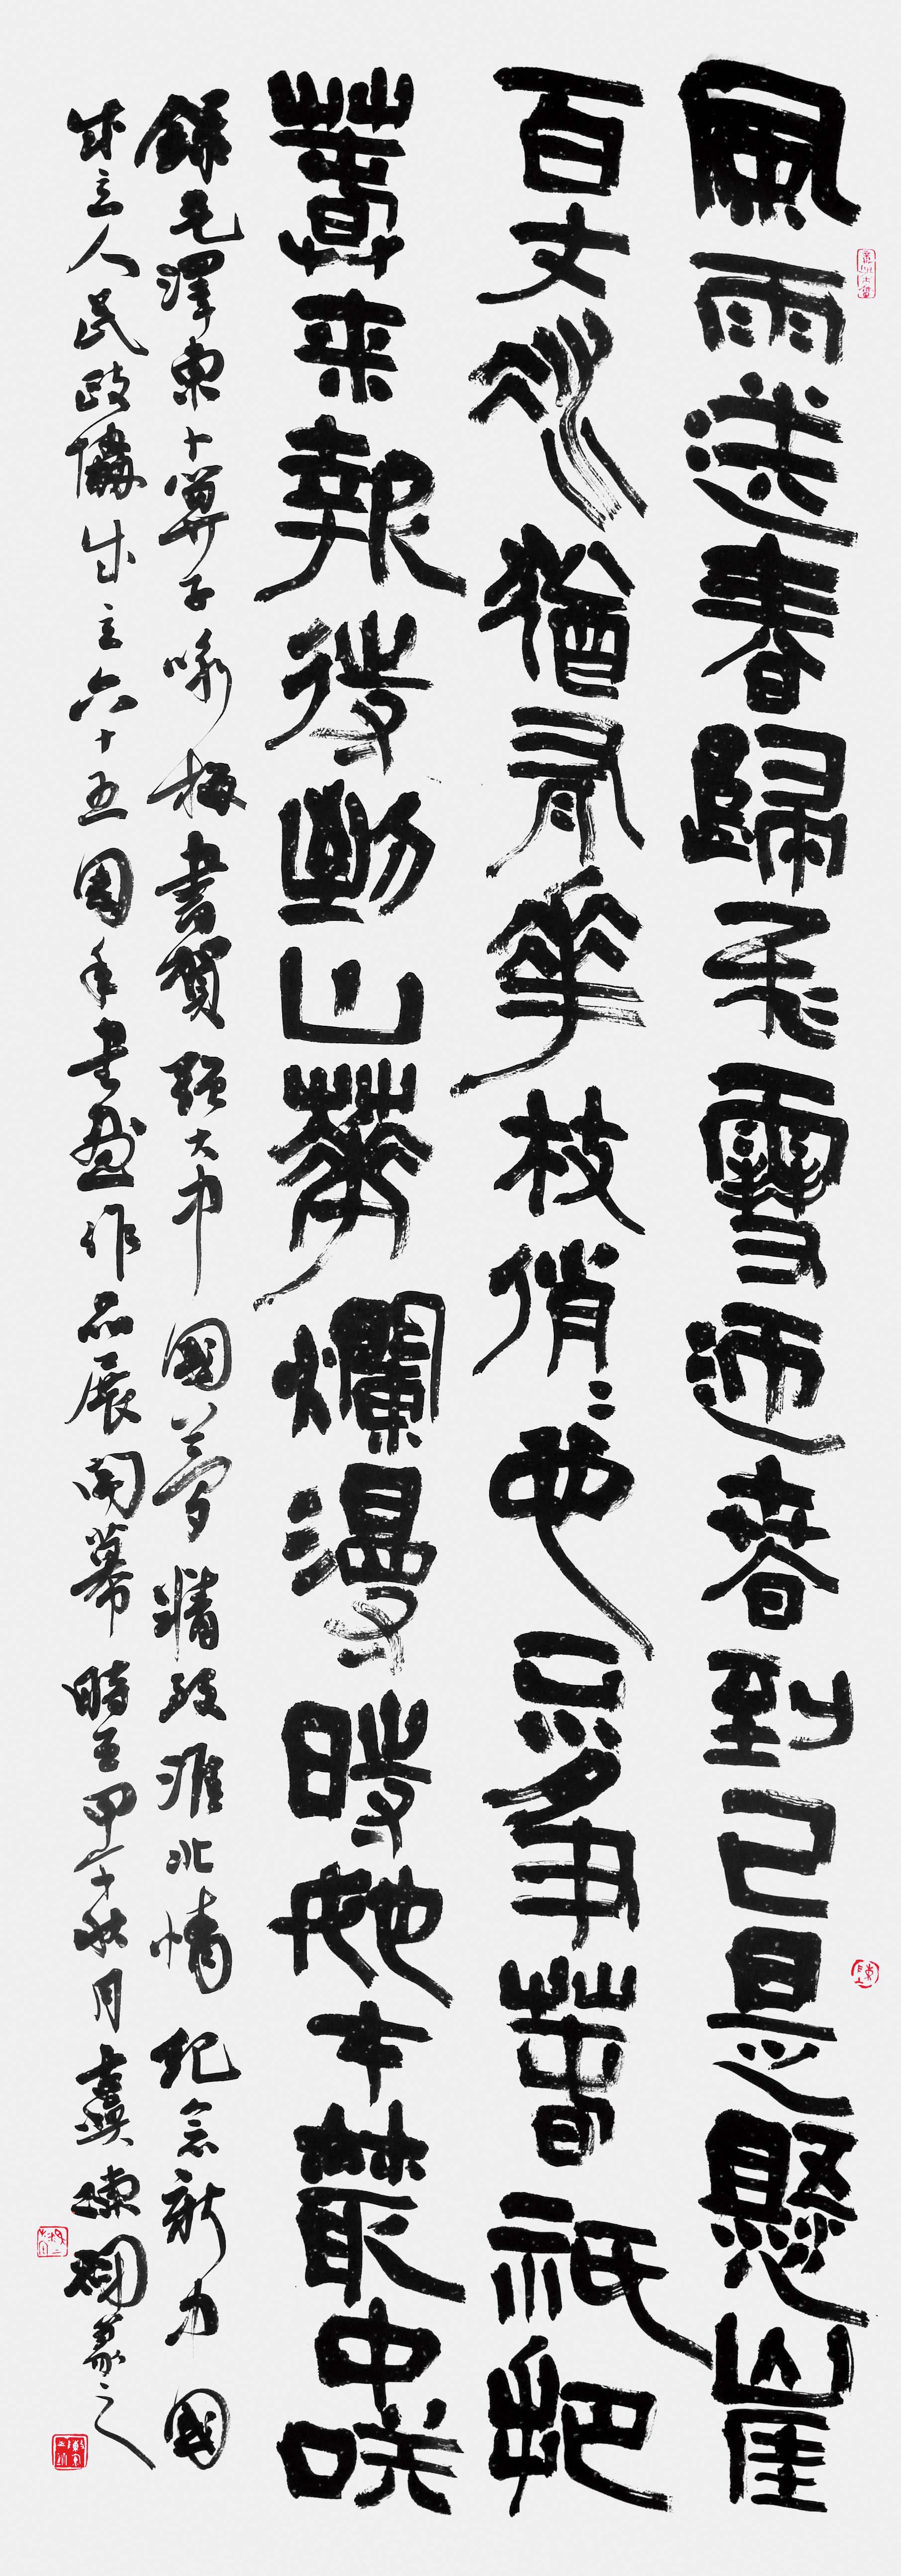 風雨送春歸飛雪迎春到已是懸崖
百丈冰猶有華枝俏〻也不争春祗把
春来報待到山華爛漫時她在叢中咲
録毛澤東卜算子咏梅書賀強大中國夢精致淮北情紀念新中國
成立人民政協成立六十五周年書畫作品展開幕時在甲午秋月陳篆之